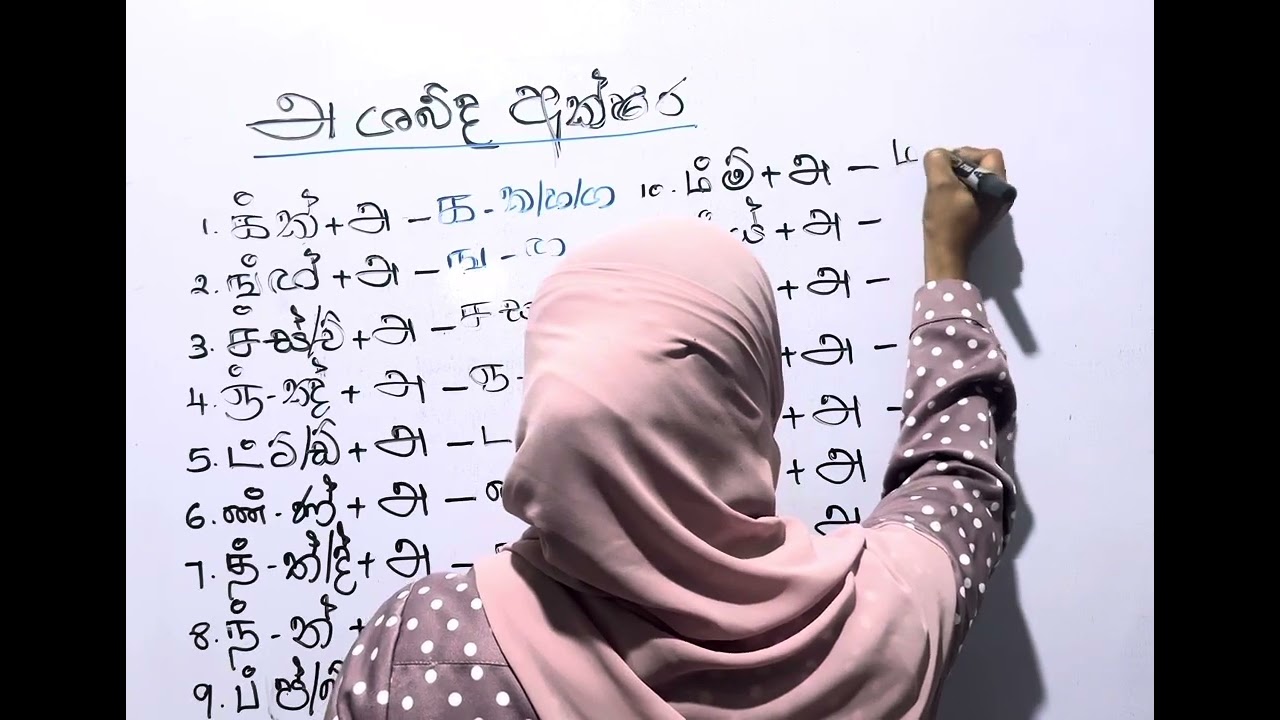 அ ශබ්ද අක්ෂර
1. க் ක් + அ - க - ක/හ/ග
2. ங் + அ - ங -
3. ச் + அ - ச
4. ஞ் - ඤ් + அ - ஞ -
5. ட் ට්/ඩ් + அ - ட
6. ண் - ණ් + அ -
7. த் - ත්/ද් + அ -
8. ந் - න් +
9. ப் ප්/
10. ம் ම් + அ - ம
ය් + அ -
+ அ -
+ அ -
+ அ -
+ அ
அ